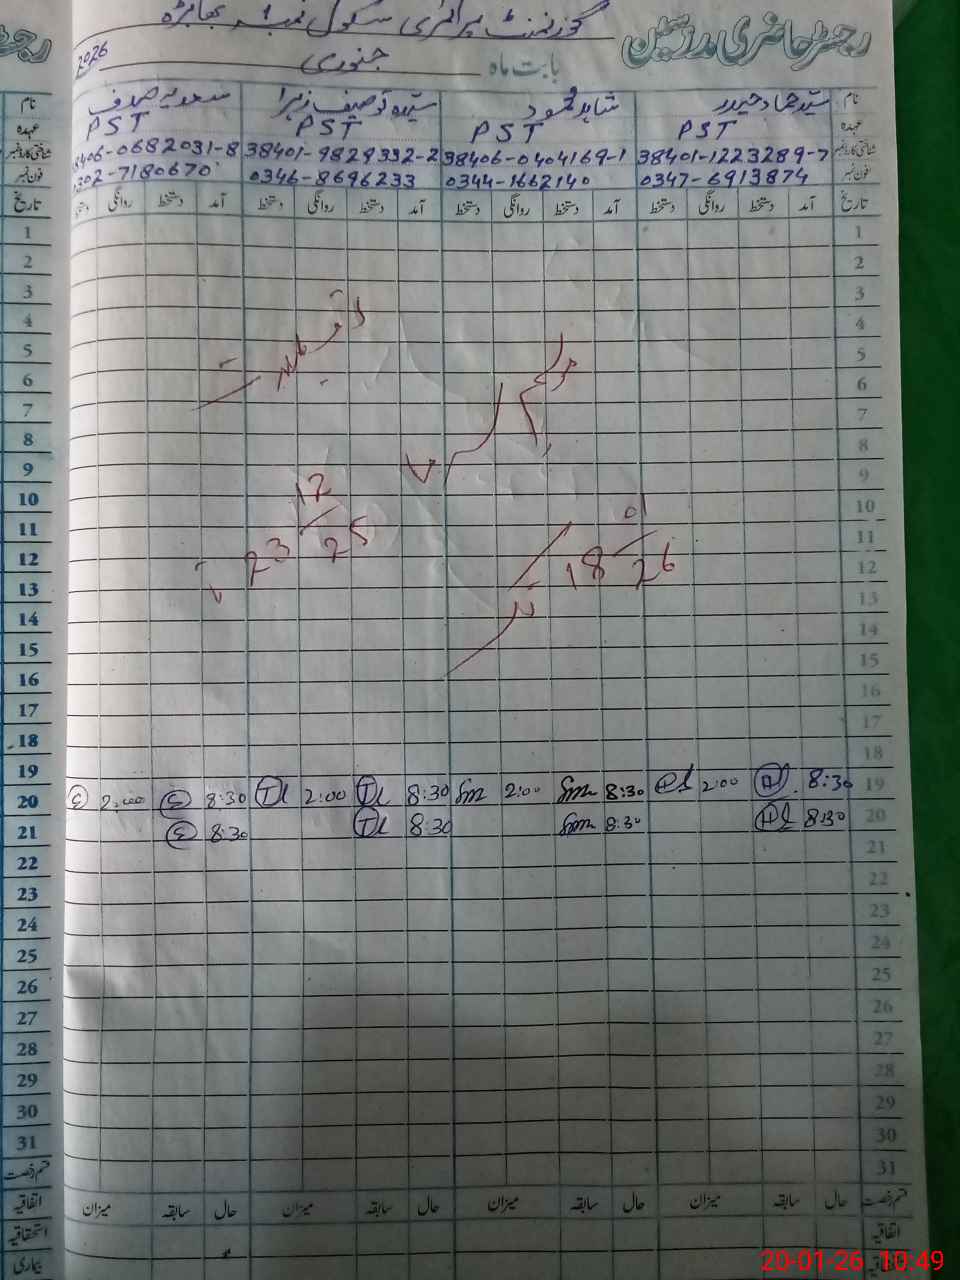 گورنمنٹ پرائمری سکول نمبر 1 بھابڑہ
رجسٹر حاضری مدرسین
بابت ماہ جنوری 2026
نام سید حماد حیدر شاہد محمود سیدہ توصیف زہرا سعدیہ صدف
عہدہ PST PST PST PST
شناختی کارڈ نمبر 38401-1223289-7 38406-0404169-1 38401-9829332-2 38406-0682031-8
فون نمبر 0347-6913874 0344-1662140 0346-8696233 0302-7180670
تاریخ آمد دستخط روانگی دستخط آمد دستخط روانگی دستخط آمد دستخط روانگی دستخط آمد دستخط روانگی دستخط
1
2
3
4
5
6
7
8
9
10
11
12
13
14
15
16
17
18
19 8:30 2:00 8:30 Sm 2:00 Sm 8:30 2:00 8:30 2:00
20 8:30 8:30 Sm 8:30 8:30
21
22
23
24
25
26
27
28
29
30
31
موسم سرما
تعطیلات
23 12/25
تا
18 01/26
قسم رخصت حال سابقہ میزان حال سابقہ میزان حال سابقہ میزان حال سابقہ میزان
اتفاقیہ
استحقاقیہ
بیماری
20-01-26 10:49